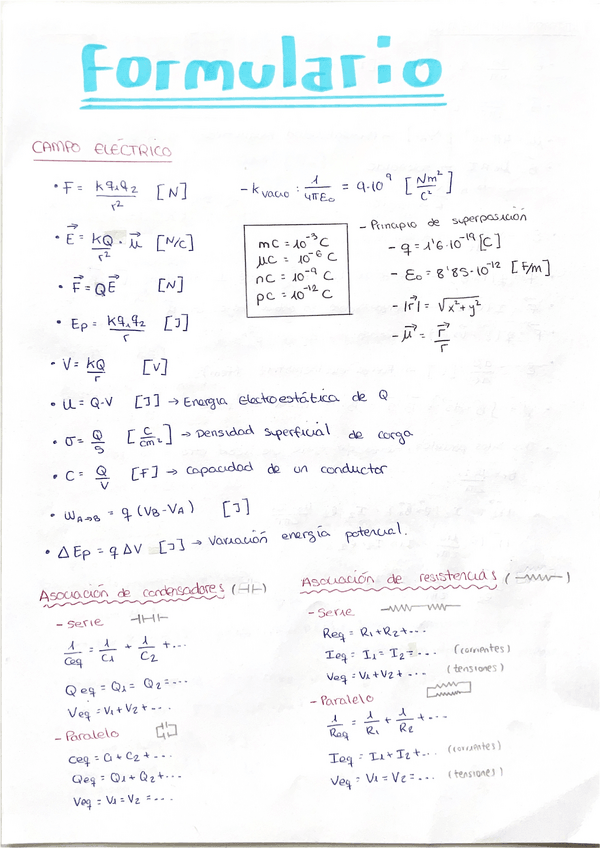 Formulario
CAMPO ELÉCTRICO
• F = kq₁q₂/r² [N]
- k vacío : 1/4πε₀ = 9·10⁹ [Nm²/C²]
• E⃗ = kQ/r² · μ⃗ [N/C]
• F⃗ = QE⃗ [N]
• Ep = kq₁q₂/r [J]
mC = 10⁻³ C
μC = 10⁻⁶ C
nC = 10⁻⁹ C
pC = 10⁻¹² C
- Principio de superposición
- q = 1'6·10⁻¹⁹ [C]
- ε₀ = 8'85·10⁻¹² [F/m]
- |r⃗| = √x²+y²
- μ⃗ = r⃗/r
• V = kQ/r [V]
• U = Q·V [J] → Energía Electroestática de Q
• σ = Q/S [C/cm²] → Densidad superficial de carga
• C = Q/V [F] → Capacidad de un conductor
• W A→B = q (VB - VA) [J]
• ΔEp = q ΔV [J] → Variación energía potencial.
Asociación de condensadores (⊣⊢)
- Serie
1/Ceq = 1/C1 + 1/C2 + ...
Qeq = Q1 = Q2 = ...
Veq = V1 + V2 + ...
- Paralelo
Ceq = C1 + C2 + ...
Qeq = Q1 + Q2 + ...
Veq = V1 = V2 = ...
Asociación de resistencias ( )
- Serie
Req = R1 + R2 + ...
Ieq = I1 = I2 = ... (corrientes)
Veq = V1 + V2 + ... (tensiones)
- Paralelo
1/Req = 1/R1 + 1/R2 + ...
Ieq = I1 + I2 + ... (corrientes)
Veq = V1 = V2 = ... (tensiones)